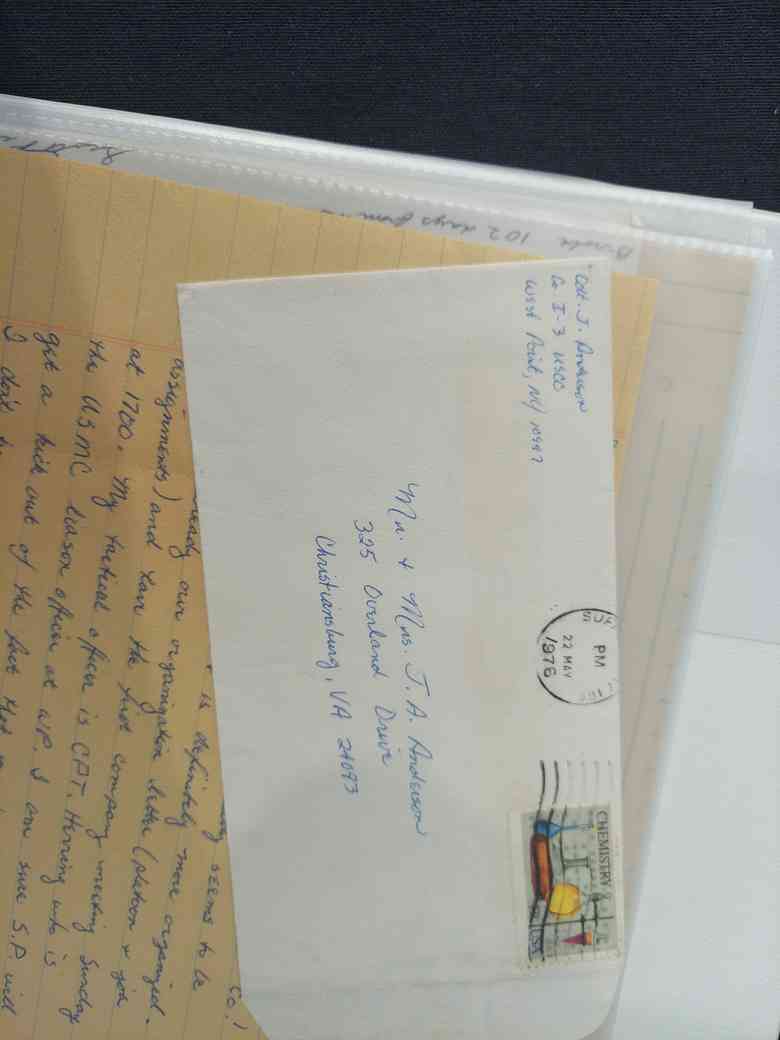 Cdt. J. Anderson
Co. I-3 USCC
West Point, NY 10997
PM
22 MAY
1976
CHEMISTRY
Mr. + Mrs. J. A. Anderson
325 Overland Drive
Christiansburg, VA 24073
102 days from
Co.!
seems to be
is definitely more organized.
ready our organization letter (platoon + job
assignments) and had the first company meeting Sunday
at 1700. My tactical officer is CPT. Herring who is
the USMC liason officer at WP. I am sure S.P. will
get a kick out of the fact that
I don't